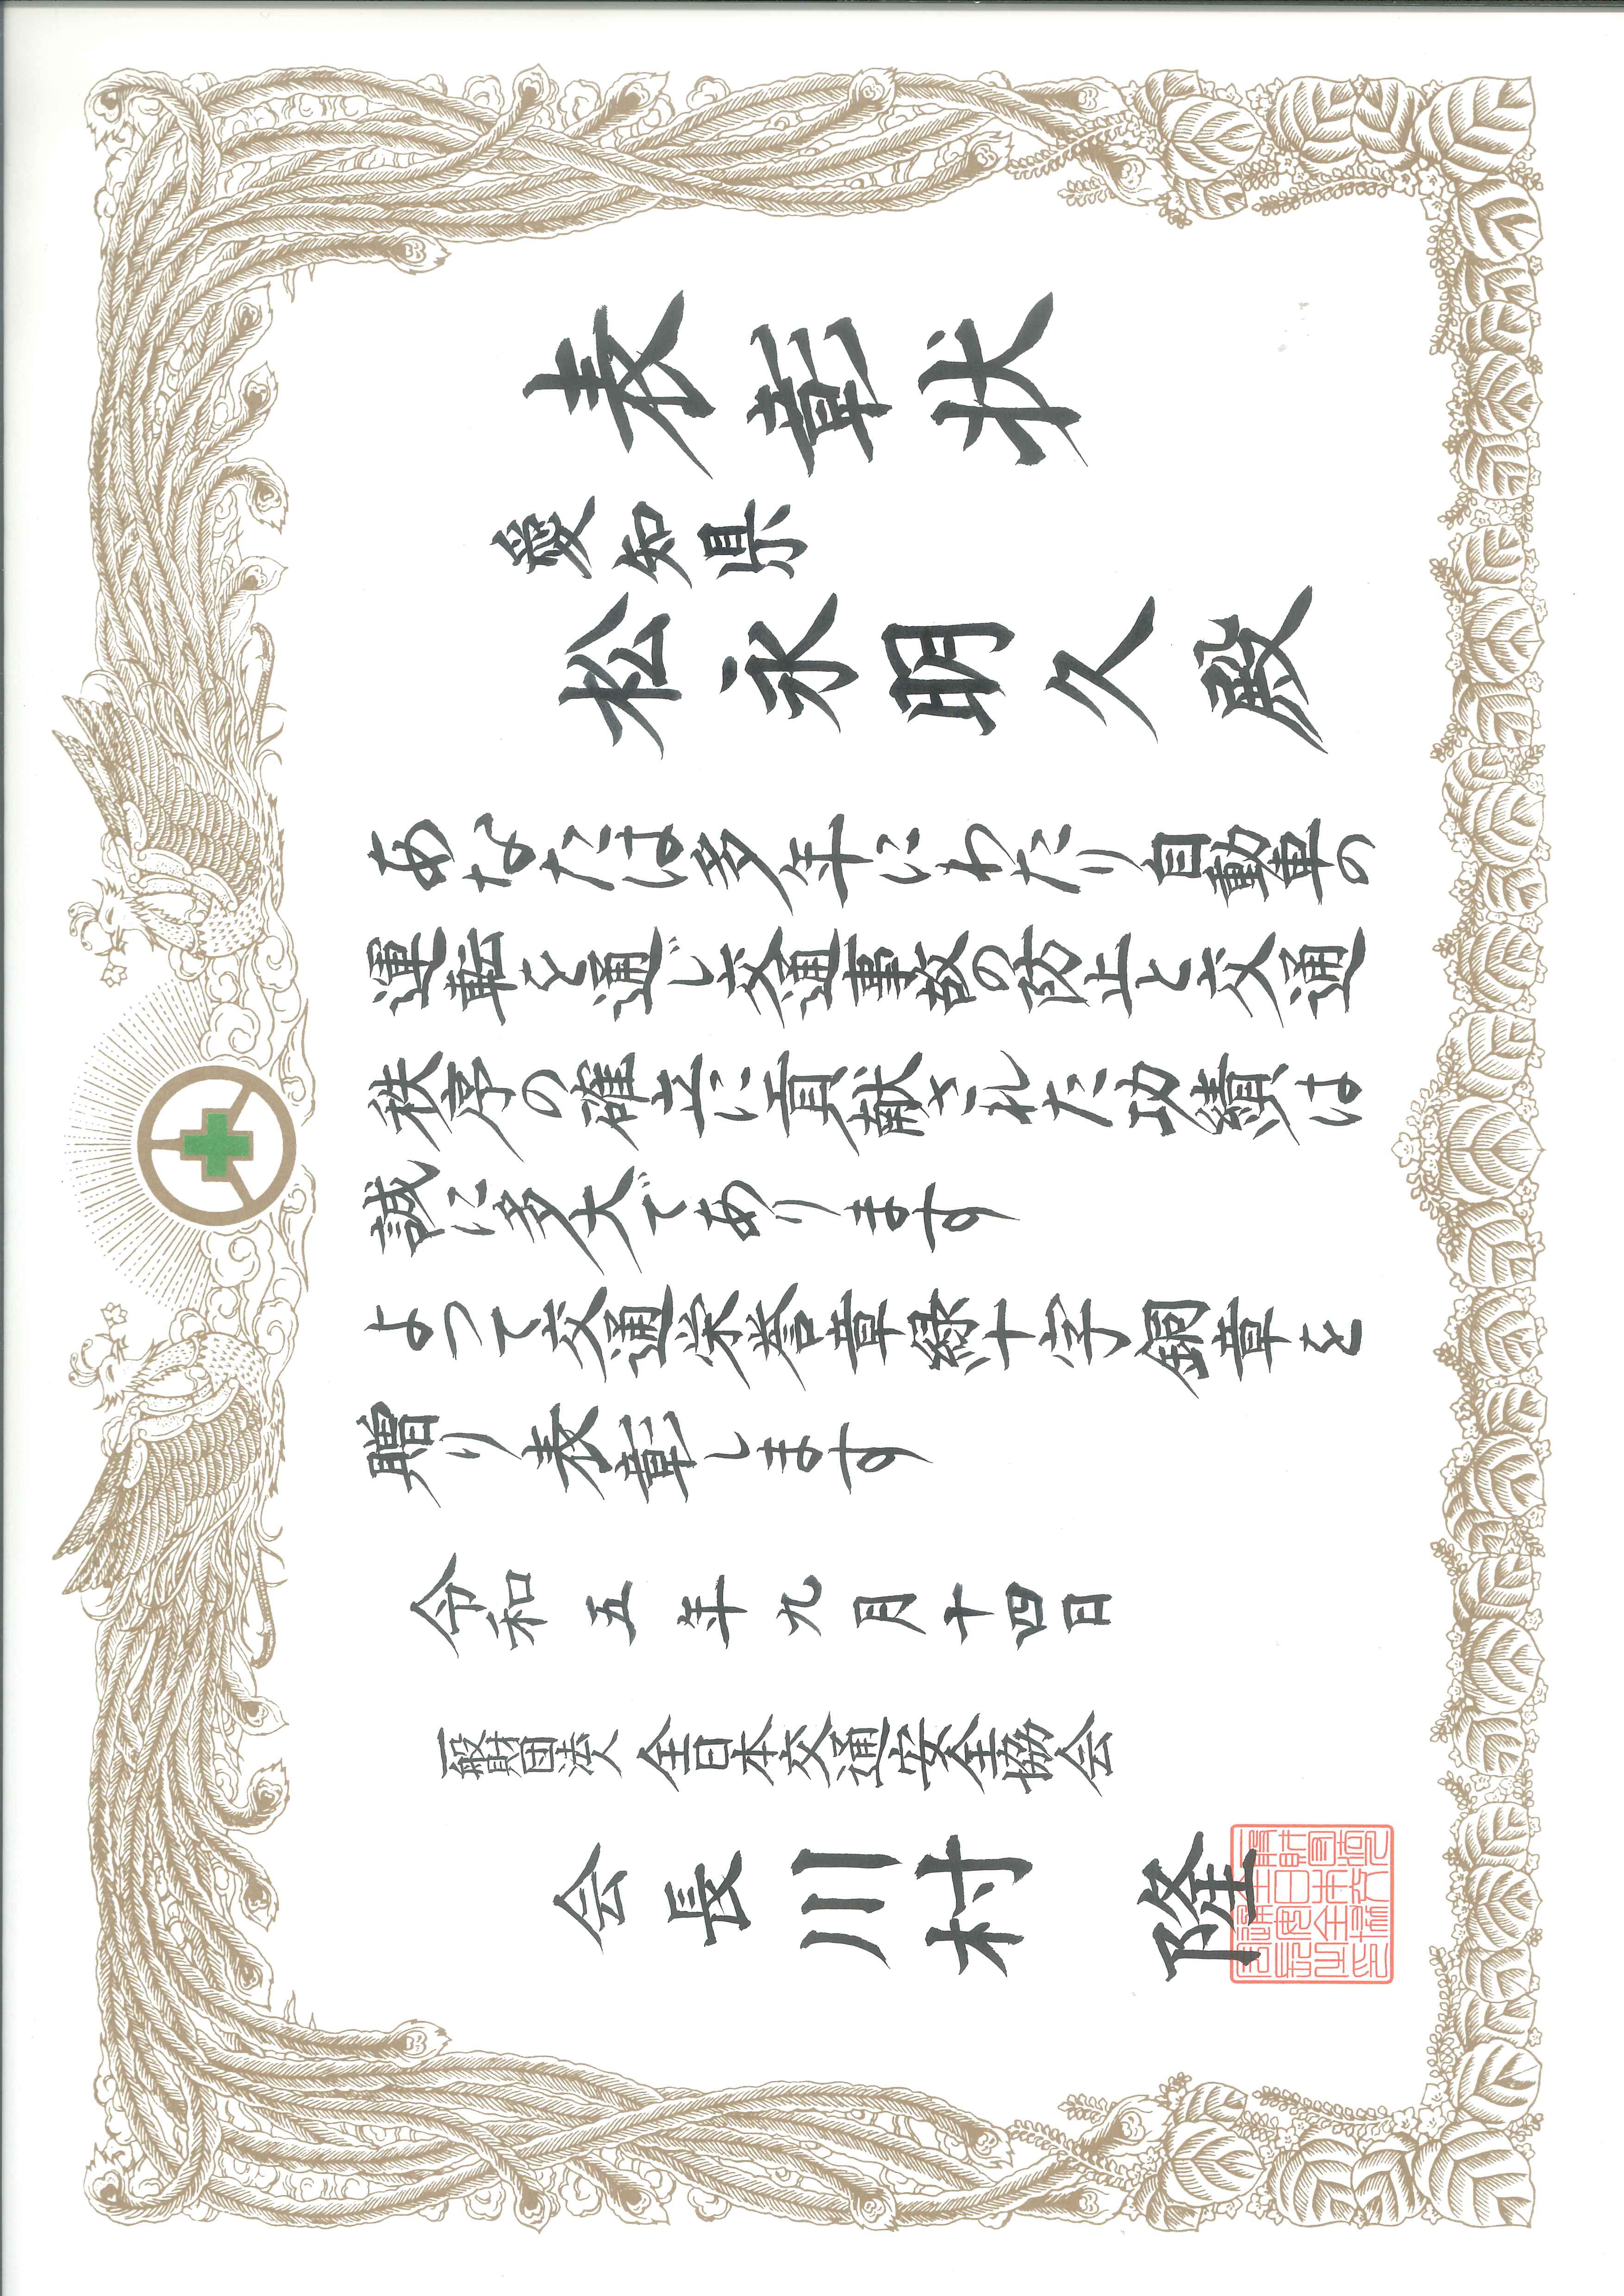 表彰状
愛知県
松永明久殿
あなたは多年にわたり自動車の
運転を通じ交通事故の防止と交通
秩序の確立に貢献された功績は
誠に多大であります
よって交通栄誉章緑十字銅章を
贈り表彰します
令和五年九月十四日
一般財団法人全日本交通安全協会
会長川村隆